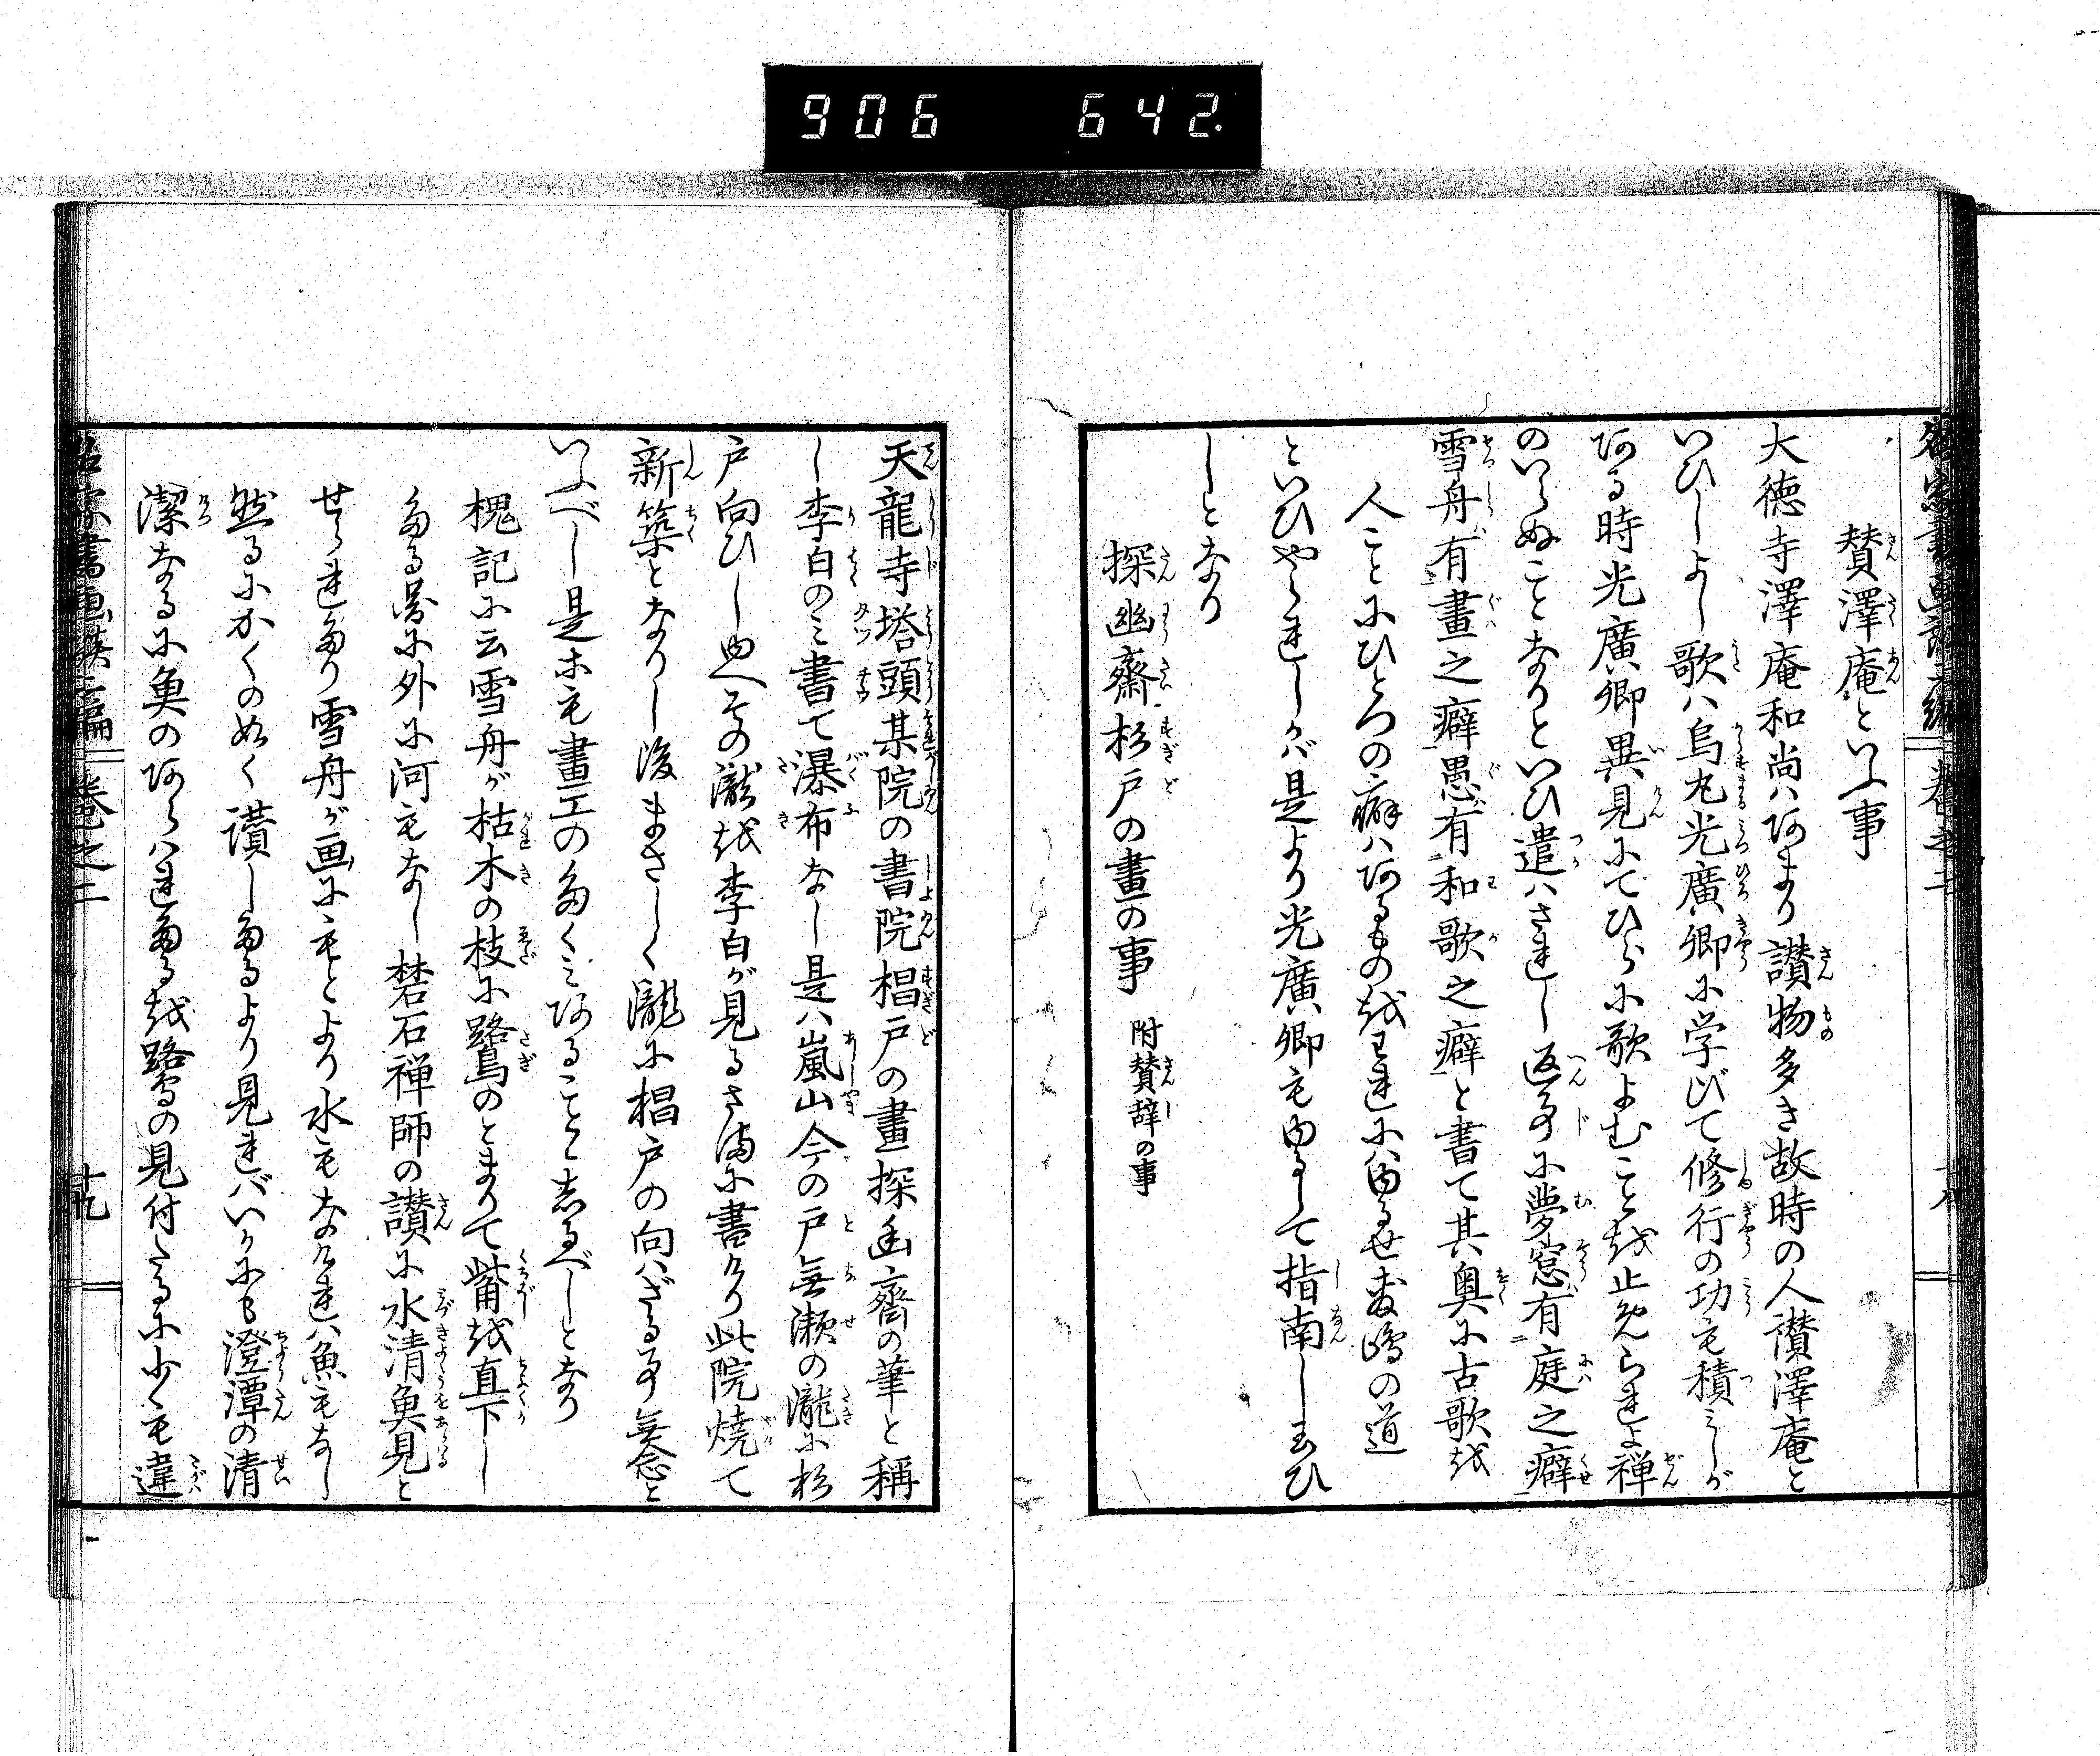 906 642.
賛澤庵といふ事
大徳寺澤庵和尚ハあまり讃物多き故時の人讃澤庵と
いひしよし歌ハ烏丸光廣卿に学びて修行の功も積ミしが
ある時光廣卿異見にてひらに歌よむことを止められよ禅
のいらぬことなりといひ遣ハされし返事に夢窓有庭之癖
雪舟有畫之癖愚有和歌之癖と書て其奥に古歌を
人ことにひとつの癖ハあるものをわれにハゆるせ敷嶋の道
といひやられしかバ是より光廣卿もゆるして指南し玉ひ
しとなり
探幽齋杉戸の畫の事 附賛辞の事
天龍寺塔頭某院の書院椙戸の畫探幽齋の筆と稱
し李白のミ書て瀑布なし是ハ嵐山今の戸無瀬の瀧に杉
戸向ひし由へその瀧を李白が見るさまに書けり此院焼て
新築となりし後まさしく瀧に椙戸の向ハざる事無念と
いふべし是ホも畫工の多くミあることゝ志るべしとなり
槐記に云雪舟が枯木の枝に鷺のとまりて觜を直下し
たる畧に外に河もなし 石禅師の讃に水清魚見と
せられたり雪舟が画にもとより水もなけれハ魚もなし
然るにかくのめく讃したるより見れバいかにも澄潭の清
潔なるに魚のあらハれたるを鷺の見付たるに少しも違
名家書画談二編 巻之二 十八
名家書画談二編 巻之二 十九